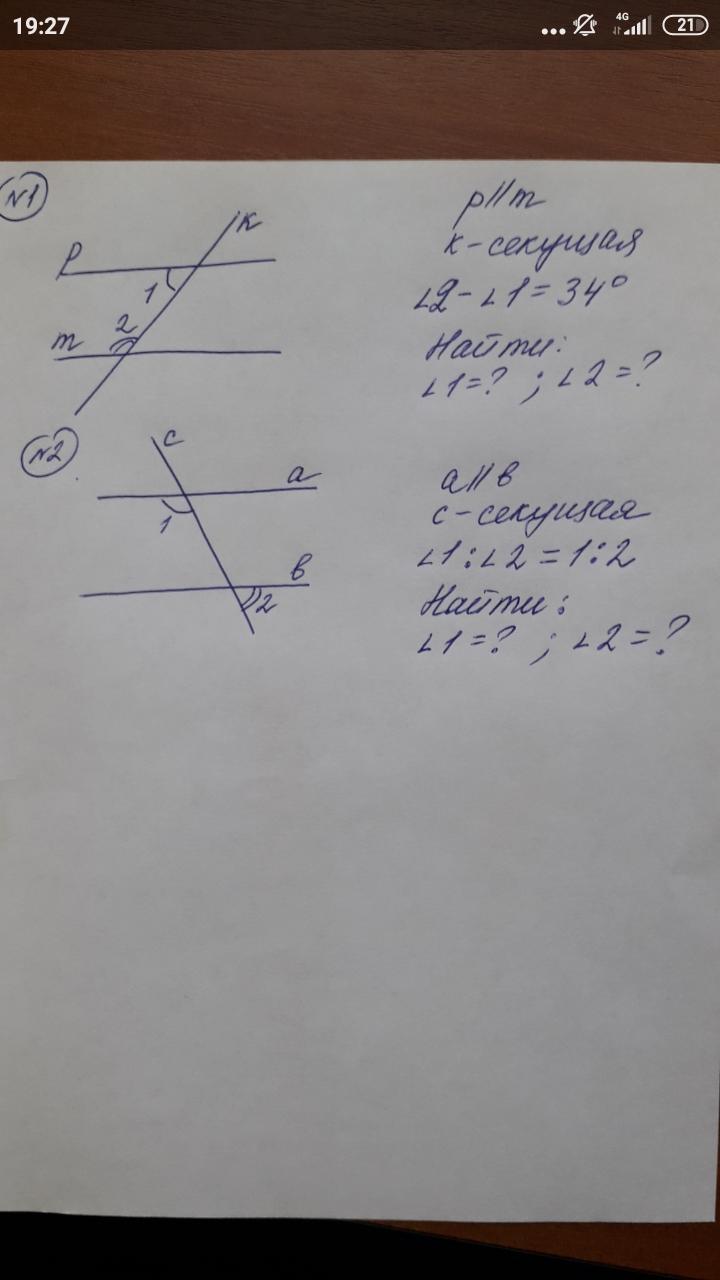 19:27
4G
21
N1
p
к
1
2
m
p//m
к-секущая
∠2-∠1=34°
Найти:
∠1=? ; ∠2=?
N2
c
a
1
в
2
a//в
c-секущая
∠1:∠2=1:2
Найти:
∠1=? ; ∠2=?